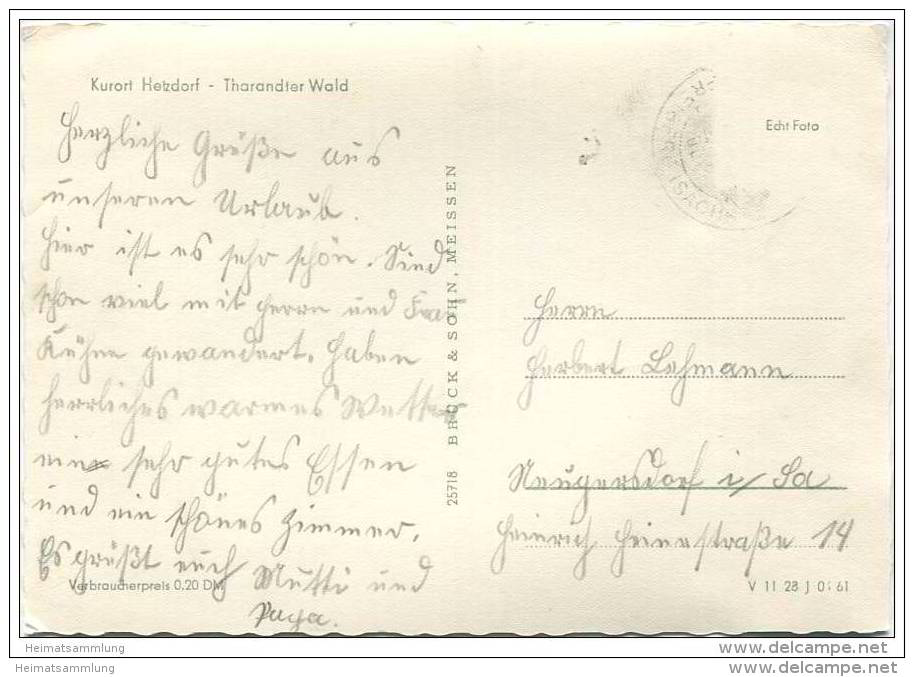 Kurort Hetzdorf - Tharandter Wald
Herzliche Grüße aus
unseren Urlaub.
Hier ist es sehr schön. Sind
schon viel mit Herrn und Frau
Kühne gewandert. Haben
herrliches warmes Wetter
ein sehr gutes Essen
und ein schönes Zimmer.
Es grüßt euch Mutti und
Papa.
Verbraucherpreis 0,20 DM
25718 BRÜCK & SOHN, MEISSEN
Echt Foto
Herrn
Herbert Lehmann
Neugersdorf i/Sa
Heinrich Heinestraße 14
V 11 28 J 01 61
Heimatsammlung
Heimatsammlung
www.delcampe.net
www.delcampe.net